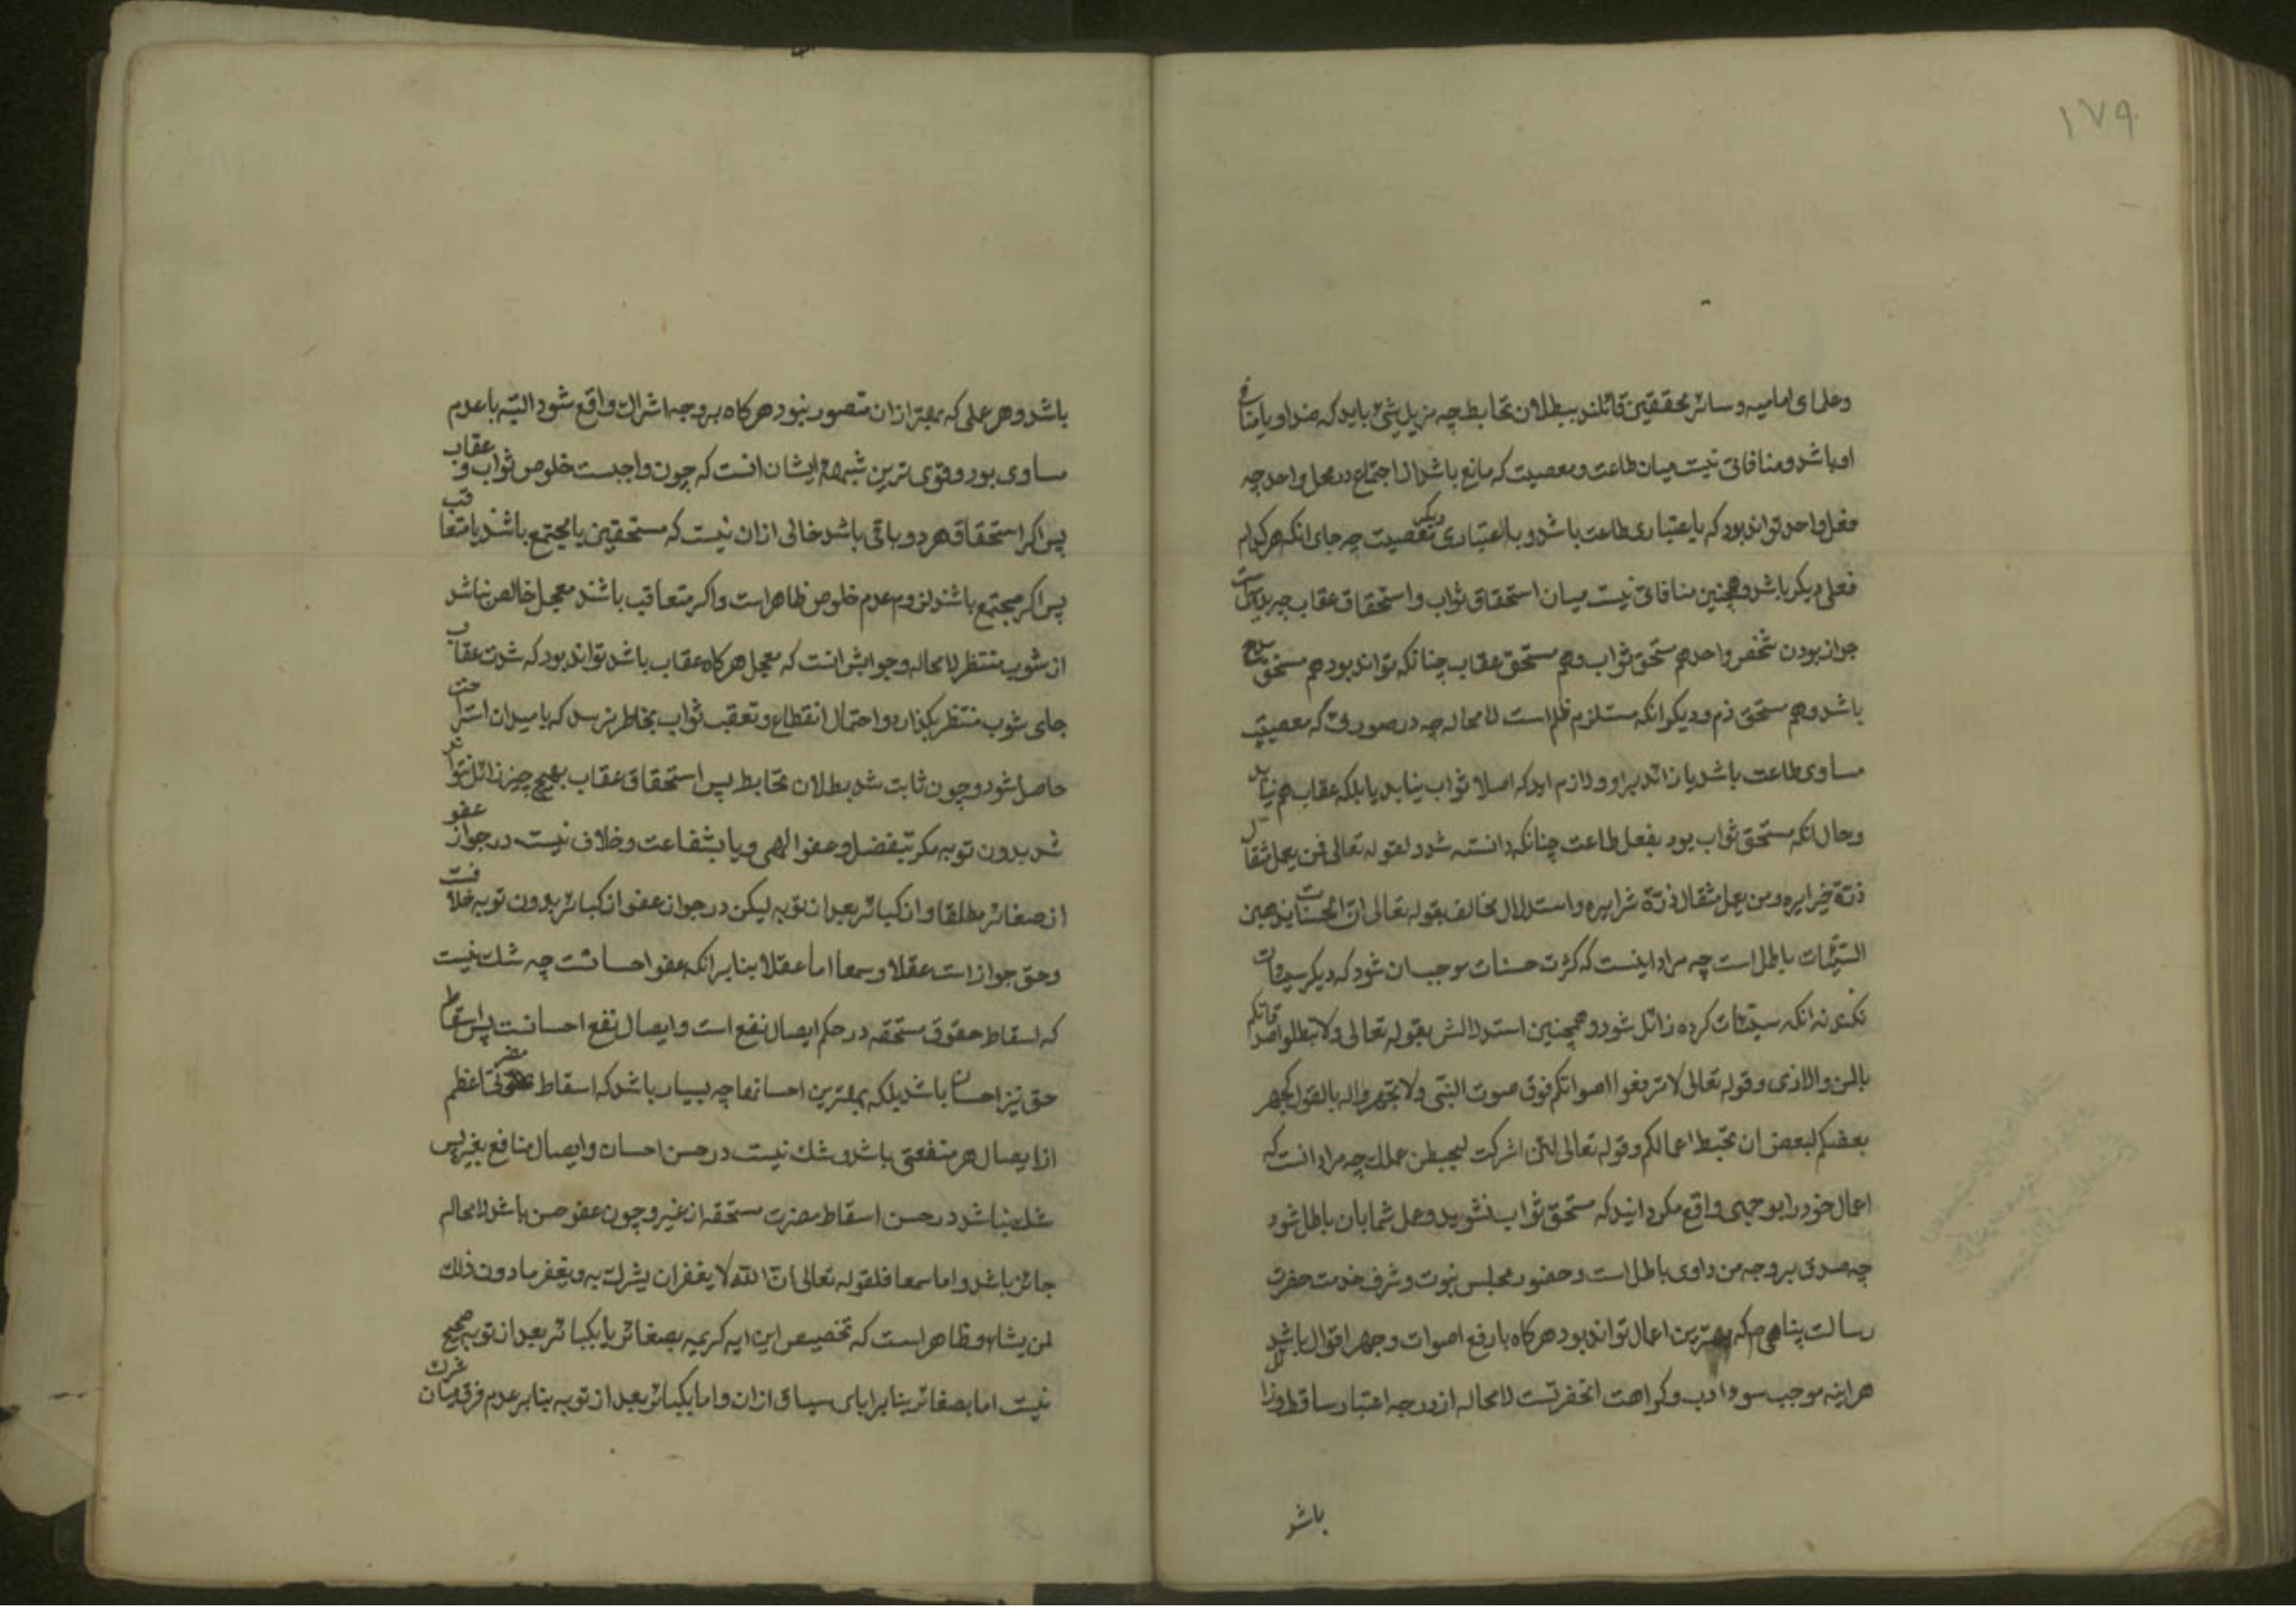 ١٧٩
وعلمای امامیه و سائر محققین قائلند ببطلان تحابط چه مزیل شیٔ باید که ضد او یا منافی
او باشد و منافاتی نیست میان طاعت و معصیت که مانع باشد از اجتماع در محل واحد چه
فعل واحد تواند بود که باعتباری طاعت باشد و باعتباری دیگر معصیت چه جای انکه هر کدام
فعلی دیکر باشد و همچنین منافاتی نیست میان استحقاق ثواب و استحقاق عقاب چه بدیهی است
جواز بودن شخص واحد هم مستحق ثواب و هم مستحق عقاب چنانکه تواند بود هم مستحق مدح
باشد و هم مستحق ذم و دیکر انکه مستلزم ظلم است لامحاله چه در صورتی که معصیت
مساوی طاعت باشد یا زائد بر او و لازم اید که اصلا ثواب نیابد یا بلکه عقاب هم نیابد
و حال انکه مستحق ثواب بود بفعل طاعت چنانکه دانسته شد و لقوله تعالی فمن یعمل مثقال
ذرّة خیرا یره و من یعمل مثقال ذرّة شرا یره و استدلال مخالف بقوله تعالی انّ الحسنات یذهبن
السیّئات باطل است چه مراد اینست که کثرت حسنات موجب ان شود که دیکر سیئات
نکند نه انکه سیّئات کرده زائل شود و همچنین استدلالش بقوله تعالی ولا تبطلوا صدقاتکم
بالمن والاذی و قوله تعالی لا ترفعوا اصواتکم فوق صوت النبی ولا تجهروا له بالقول کجهر
بعضکم لبعض ان تحبط اعمالکم و قوله تعالی لئن اشرکت لیحبطن عملک چه مراد انست که
اعمال خود را بوجهی واقع مکردانید که مستحق ثواب نشوید و عمل شما بان باطل شود
چه صدقه بر وجه من و اذی باطل است و حضور مجلس نبوت و شرف خدمت حضرت
رسالت پناهی ص که بهترین اعمال تواند بود هرکاه با رفع اصوات و جهر اقوال باشد
هراینه موجب سوء ادب و کراهت انحضرتست لامحاله از درجه اعتبار ساقط و زائل
باشد
باشد و هر عملی که بهتر از ان متصور نبود هرکاه بر وجه اشراک واقع شود البته با عدم
مساوی بود و قوی ترین شبهه ایشان انست که چون واجبست خلوص ثواب و عقاب
پس اکر استحقاق هر دو باقی باشد خالی از ان نیست که مستحقین یا مجتمع باشند یا متعاقب
پس اکر مجتمع باشند لزوم عدم خلوص ظاهر است و اکر متعاقب باشند معجل خالص نباشد
از شوب منتظر لامحاله و جوابش انست که معجل هرکاه عقاب باشد تواند بود که شدت عقاب
جای شوب منتظر نکذارد و احتمال انقطاع و تعقب ثواب بخاطر نرسد که بامید ان استراحت
حاصل شود و چون ثابت شد بطلان تحابط پس استحقاق عقاب بهیچ چیز زائل نتواند
شد بدون توبه مکر بتفضل و عفو الهی و یا بشفاعت و خلاف نیست در جواز عفو
از صغائر مطلقا و از کبائر بعد از توبه لیکن در جواز عفو از کبائر بدون توبه خلافست
و حق جواز است عقلا و سمعا اما عقلا بنابر انکه عفو احسانست چه شک نیست
که اسقاط حقوق مستحقه در حکم ایصال نفع است و ایصال نفع احسانست پس اسقاط
حق نیز احسان باشد بلکه بهترین احسانها چه بسیار باشد که اسقاط مضرتی اعظم
از ایصال هر منفعتی باشد و شک نیست در حسن احسان و ایصال منافع بغیر پس
شک نباشد در حسن اسقاط مضرت مستحقه از غیر و چون عفو حسن باشد لامحاله
جائز باشد و اما سمعا فلقوله تعالی انّ اللّه لا یغفر ان یشرک به و یغفر ما دون ذلک
لمن یشاء و ظاهر است که تخصیص این ایه کریمه بصغائر یا بکبائر بعد از توبه صحیح
نیست اما بصغائر بنابر ابای سیاق از ان و اما بکبائر بعد از توبه بنابر عدم فرق میان شرک